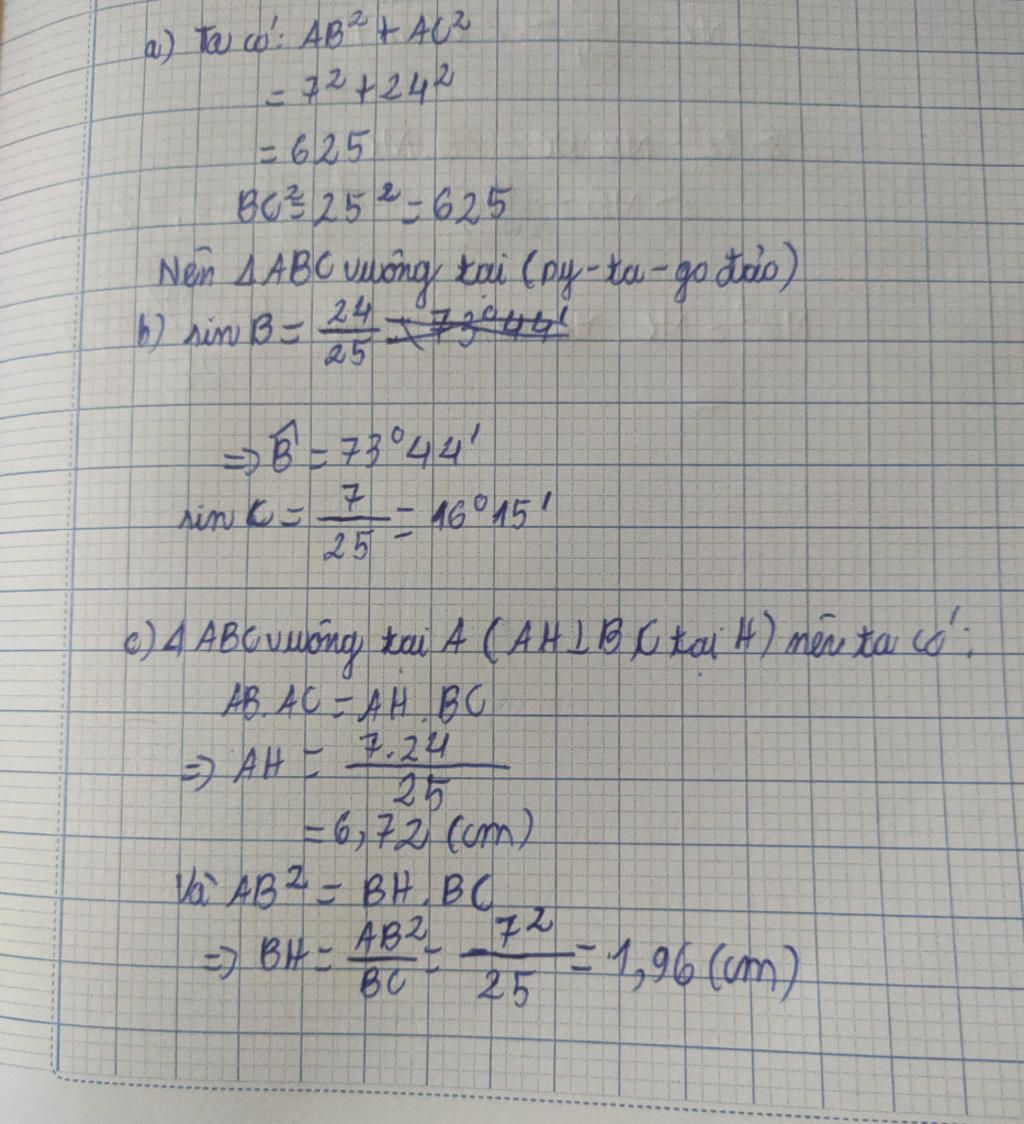 a) Ta có: AB² + AC²
= 7² + 24²
= 625
BC² = 25² = 625
Nên ΔABC vuông tại (py-ta-go đảo)
b) sin B = 24/25 = 73°44'
=> B̂ = 73°44'
sin C = 7/25 = 16°15'
c) Δ ABC vuông tại A (AH⊥BC tại H) nên ta có:
AB.AC = AH.BC
=> AH = 7.24/25
= 6,72 (cm)
Và AB² = BH.BC
=> BH = AB²/BC = 7²/25 = 1,96 (cm)